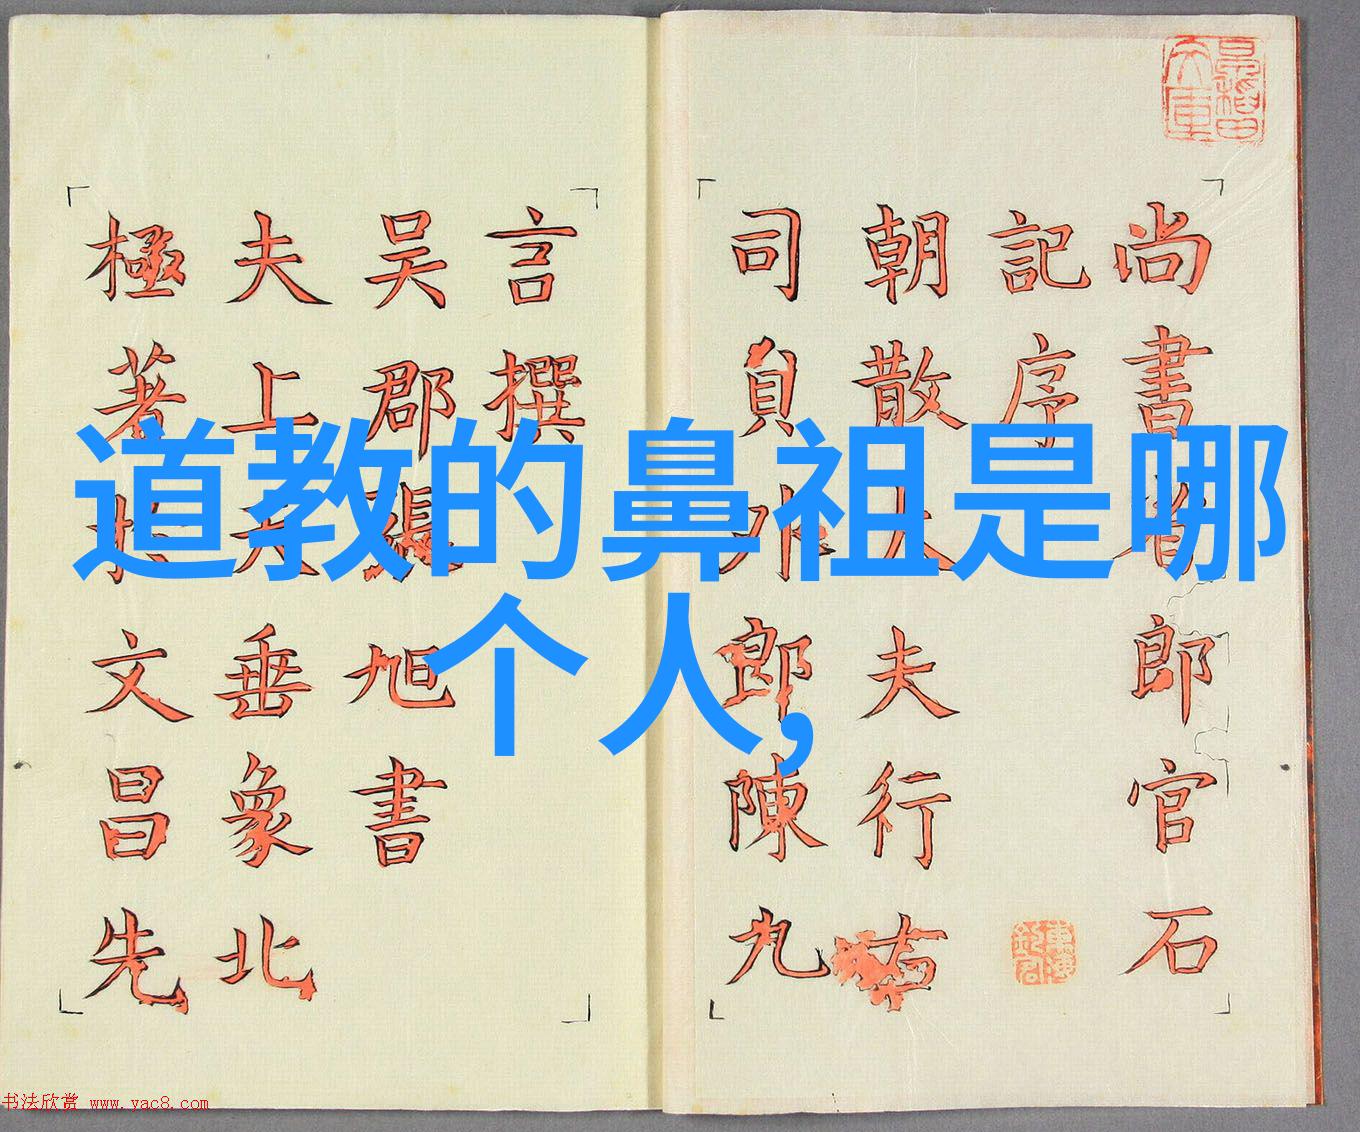 道教的鼻祖是哪
个人,
尚書省郎官石
記序
朝散大夫行右
司員外郎陳九
言撰
吴郡張旭書
夫上天垂象北
極著於文昌先
书法欣赏 www.yac8.com